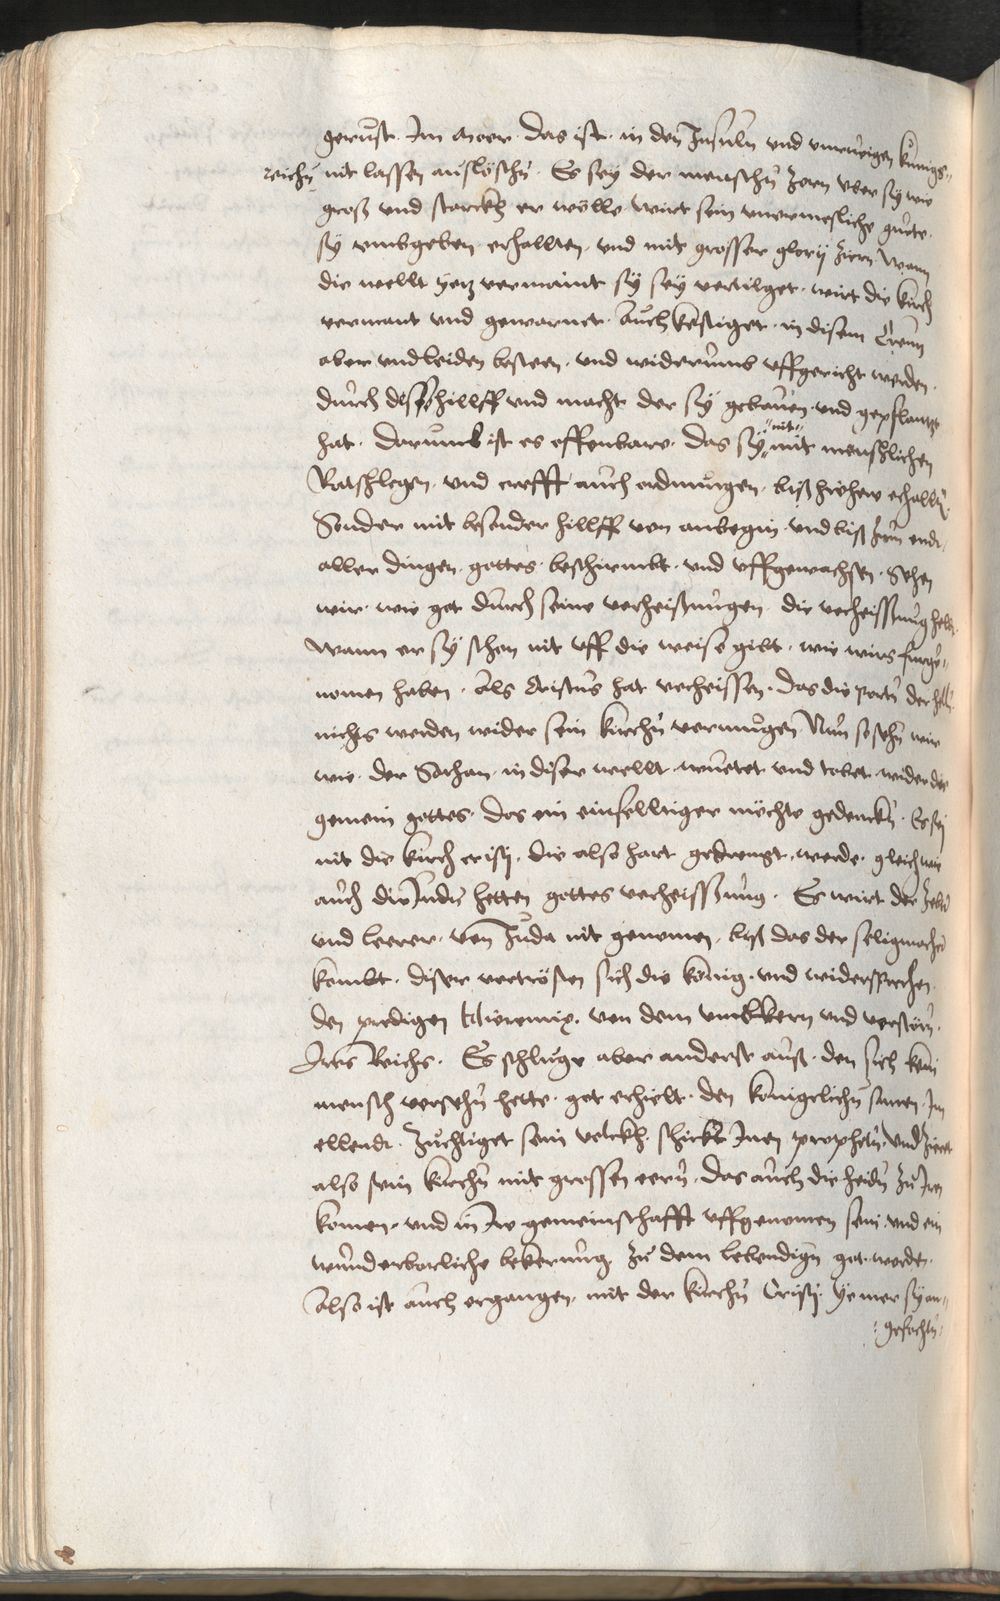 gerust. Im Meer. das ist. in den Insuln und unruigen künigs=
reichn nit lassen auslöschn. Es sey der menschn zorn uber sy wie
groß und starckh er wölle wirt sein unermesliche güte.
sy umbgeben erhallten. und mit grosser glory ziern wann
die wellt yetz vermaint sy sey vertilget. wirt die kirch
vermant und gewarnet. Auch kestiget. in disem Creutz
aber und leiden besteen. und widerumb uffgericht werden.
durch des hillff und macht der sy gebauen und gepflantzt
hat. Darumb ist es offenbare. das sy nit mit menschlichen
Ratschlegen. und crefft auch ordnungen. biß hieher erhalltn.
Sonder mit besonder hillff von anbegin und biß zum ende.
aller dingen. gottes. beschirmbt. und uffgewachsen. Sehen
wir. wie got durch seine verheißungen. die verheissung hellt.
wann er sy schon nit uff die weise gibt. wie wirs furge=
nomen haben. Als Cristus hat verheissen. das die portn der helln
nichts werden wider sein kirchn vermugen Nun so sehn wir
wie. der Sathan. in diser wellt wuetet und tobet. wider die
gemein gottes. das ein einfelltiger möchte gedenckn. Es sey
nit die kirch cristj. die also hart getrengt. werde. gleich wie
auch die Judn hetten gottes verheissung. Es wirt der Zebter
und leerer. von Juda nit genomen. biß das der seligmacher
kombt. diser vertrösten sich die könig. und widersprechen.
den predigen Hieremiæ. von dem umbkern und verstörn.
Ires Reichs. Es schluge aber anderst auß. den sich kein
mensch versehn hette. got erhielt. den königlichn samen. Im
ellende. züchtiget sein volckh. schickt Inen prophetn und zieret
also sein kirchn mit grossen eern. das auch die heidn zu Iren
komen. und in Ire gemeinschafft uffgenomen sein. und ein
wunderbarliche bekerung. zu dem lebendign got worden.
Also ist auch ergangen. mit der kirchn Cristj. ye mer sy an=
gefochtn